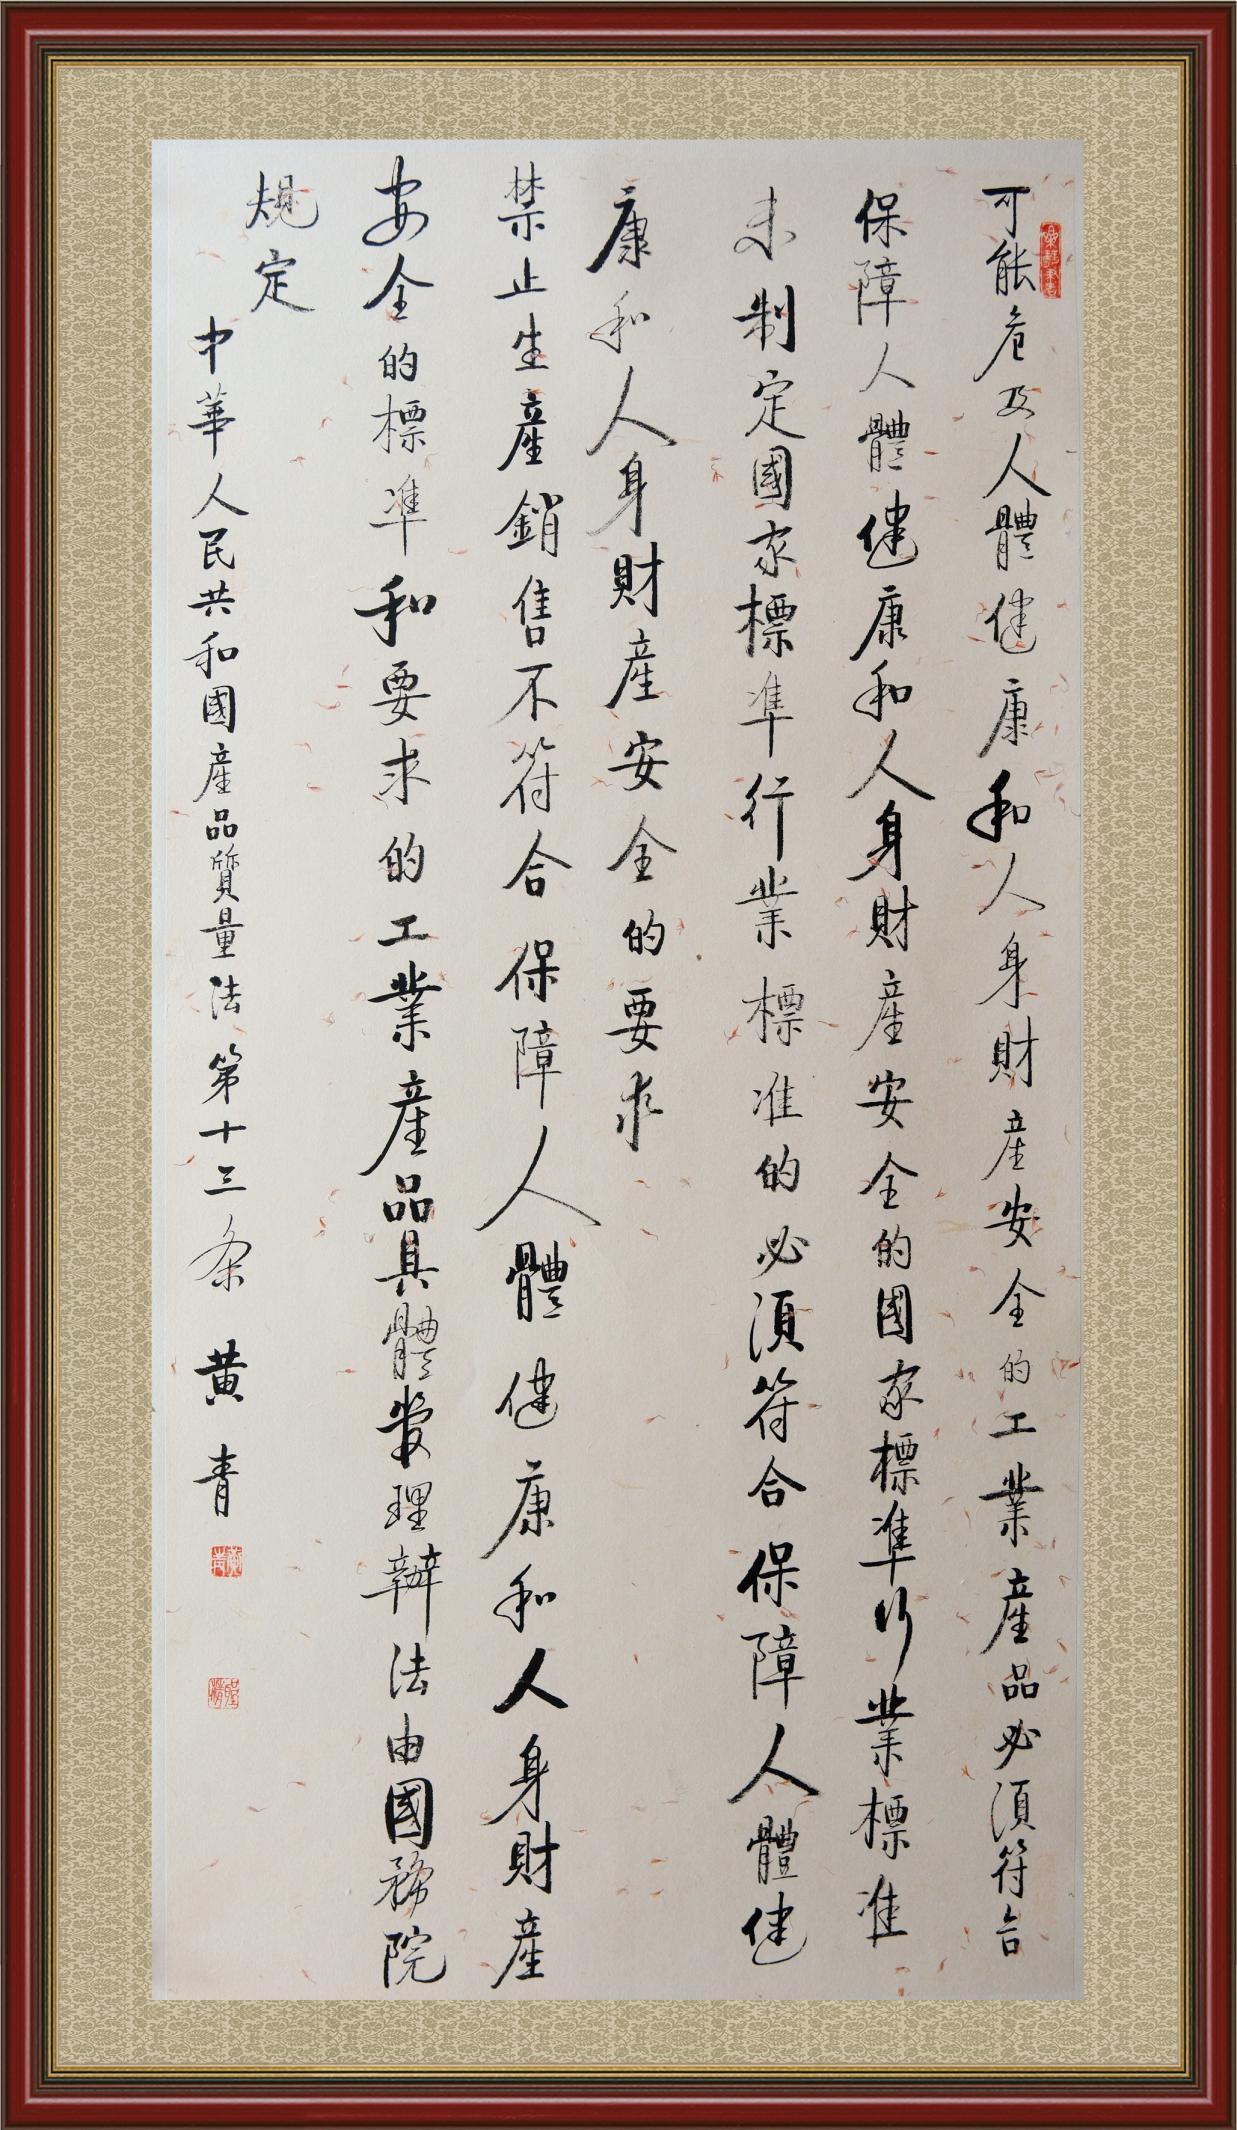 可能危及人體健康和人身財産安全的工業産品必須符合
保障人體健康和人身財産安全的國家標準行業標准
未制定國家標準行業標准的必須符合保障人體健
康和人身財産安全的要求
禁止生産銷售不符合保障人體健康和人身財産
安全的標準和要求的工業産品具體管理辦法由國務院
規定
中華人民共和國産品質量法第十三条 黄青